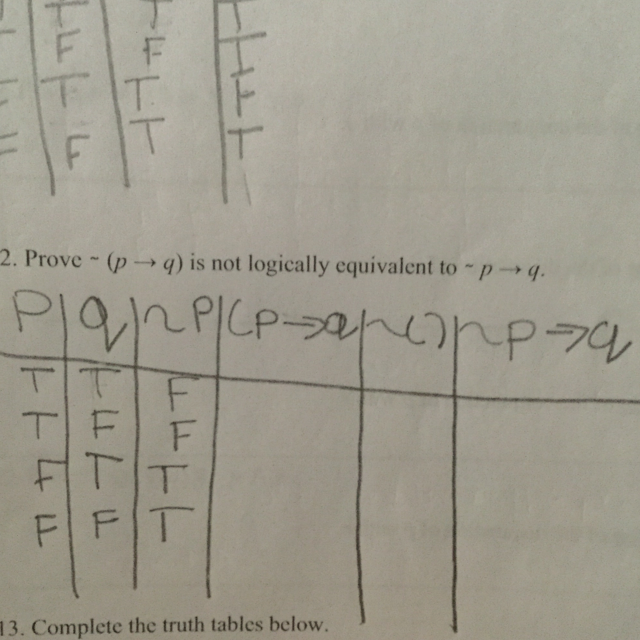 T T T
F F T
T T F
F F T T
2. Prove ~ (p → q) is not logically equivalent to ~ p → q.
P q ~P (P→q ~() ~p →q
T T F
T F F
F T T
F F T
13. Complete the truth tables below.